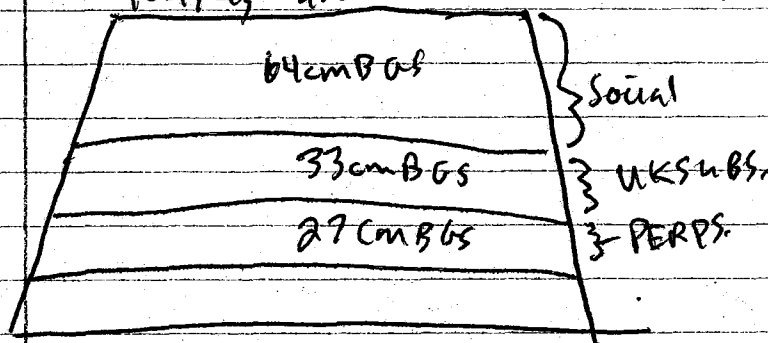 64cmBGS
Social
33cmBGS
UKSUBS.
27cmBGS
PERPS.